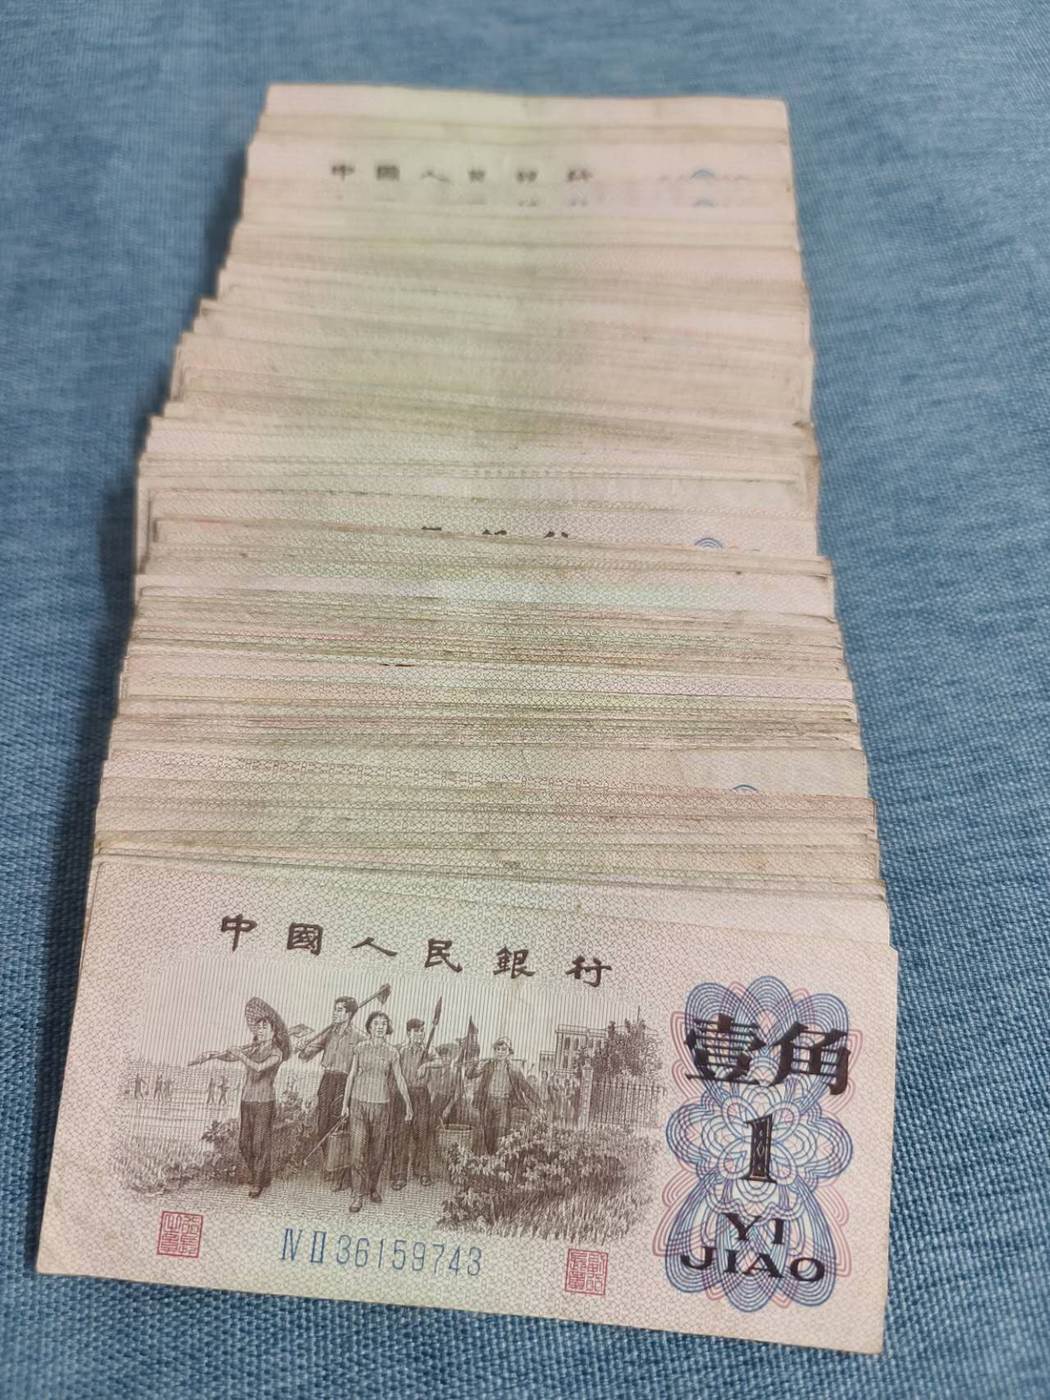 中國人民銀行
中國人民銀行
壹角
1
YI
JIAO
ⅣⅡ36159743